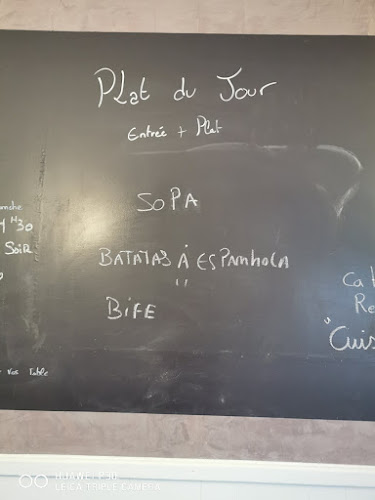 Plat du Jour
Entrée + Plat
SOPA
BATATAS À ESPANHOLA
"
BIFE
H30
Soir
Vos Table
Ca
Re
"Cuis
HUAWEI P30
LEICA TRIPLE CAMERA